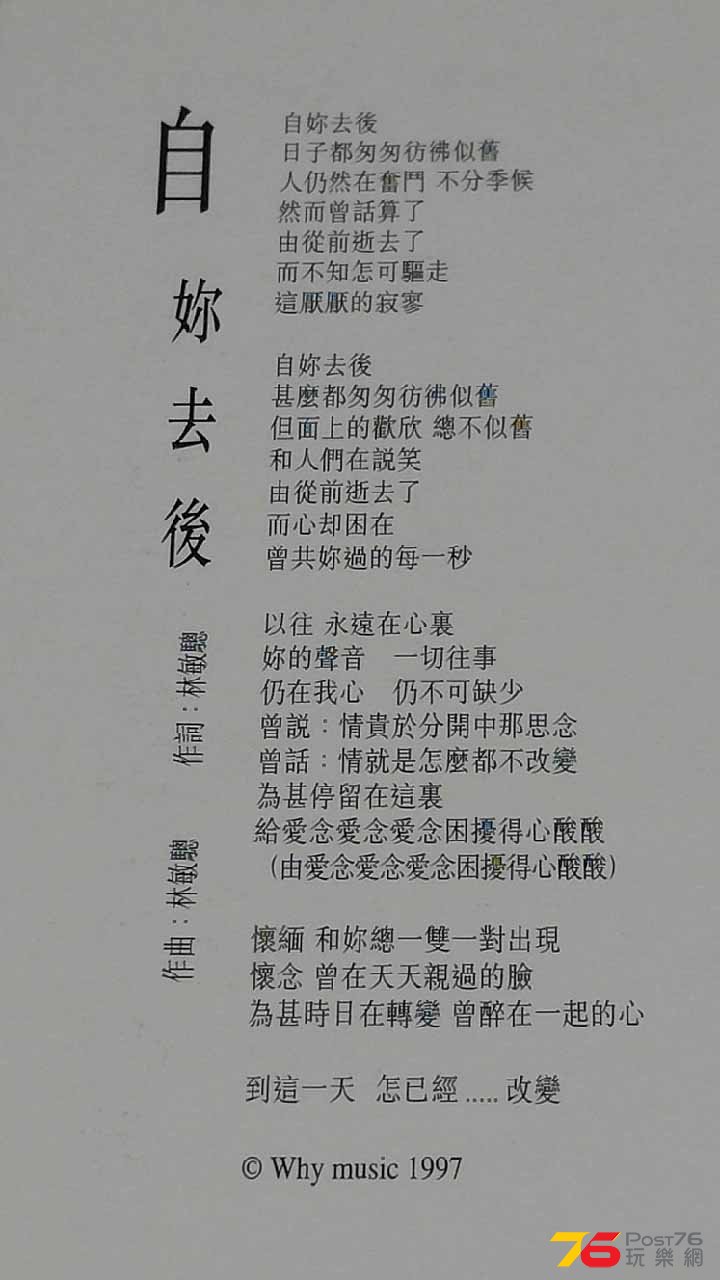 自妳去後
作詞：林敏驄
作曲：林敏驄
自妳去後
日子都匆匆彷彿似舊
人仍然在奮鬥 不分季候
然而曾話算了
由從前逝去了
而不知怎可驅走
這厭厭的寂寥
自妳去後
甚麼都匆匆彷彿似舊
但面上的歡欣 總不似舊
和人們在説笑
由從前逝去了
而心却困在
曾共妳過的每一秒
以往 永遠在心裏
妳的聲音 一切往事
仍在我心 仍不可缺少
曾説：情貴於分開中那思念
曾話：情就是怎麼都不改變
為甚停留在這裏
給愛念愛念愛念困擾得心酸酸
（由愛念愛念愛念困擾得心酸酸）
懷緬 和妳總一雙一對出現
懷念 曾在天天親過的臉
為甚時日在轉變 曾醉在一起的心
到這一天 怎已經.....改變
© Why music 1997
76 POST76
玩樂網